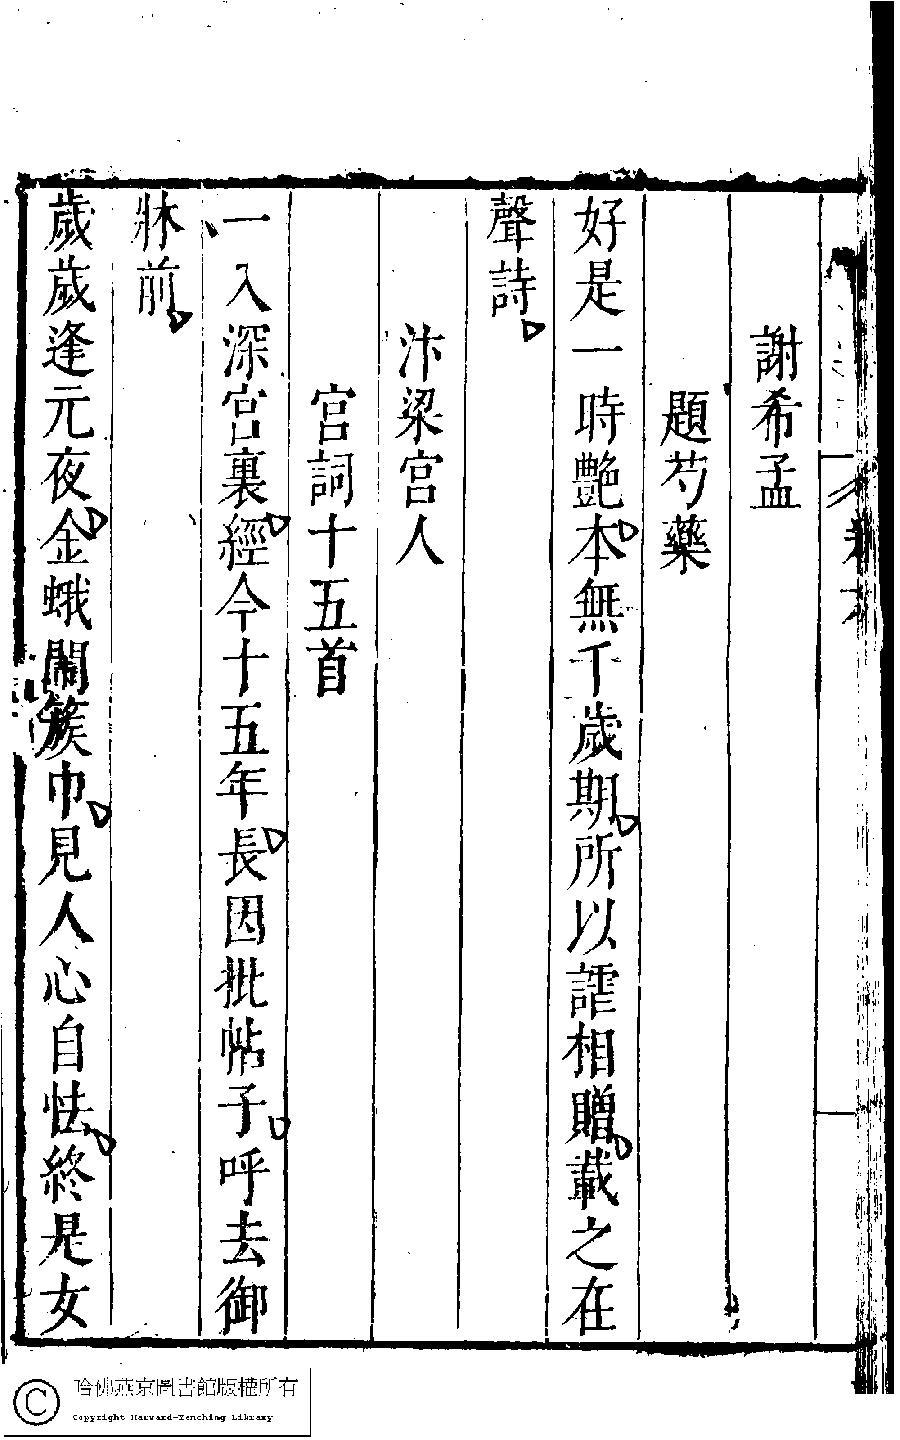 謝希孟
題芍藥
好是一時艶本無千歲期所以謔相贈載之在
聲詩
汴梁宮人
宮詞十五首
一入深宮裏經今十五年長因批帖子呼去御
牀前
歲歲逢元夜金蛾鬧簇巾見人心自怯終是女
哈佛燕京圖書館版權所有
Copyright Harvard-Yenching Library